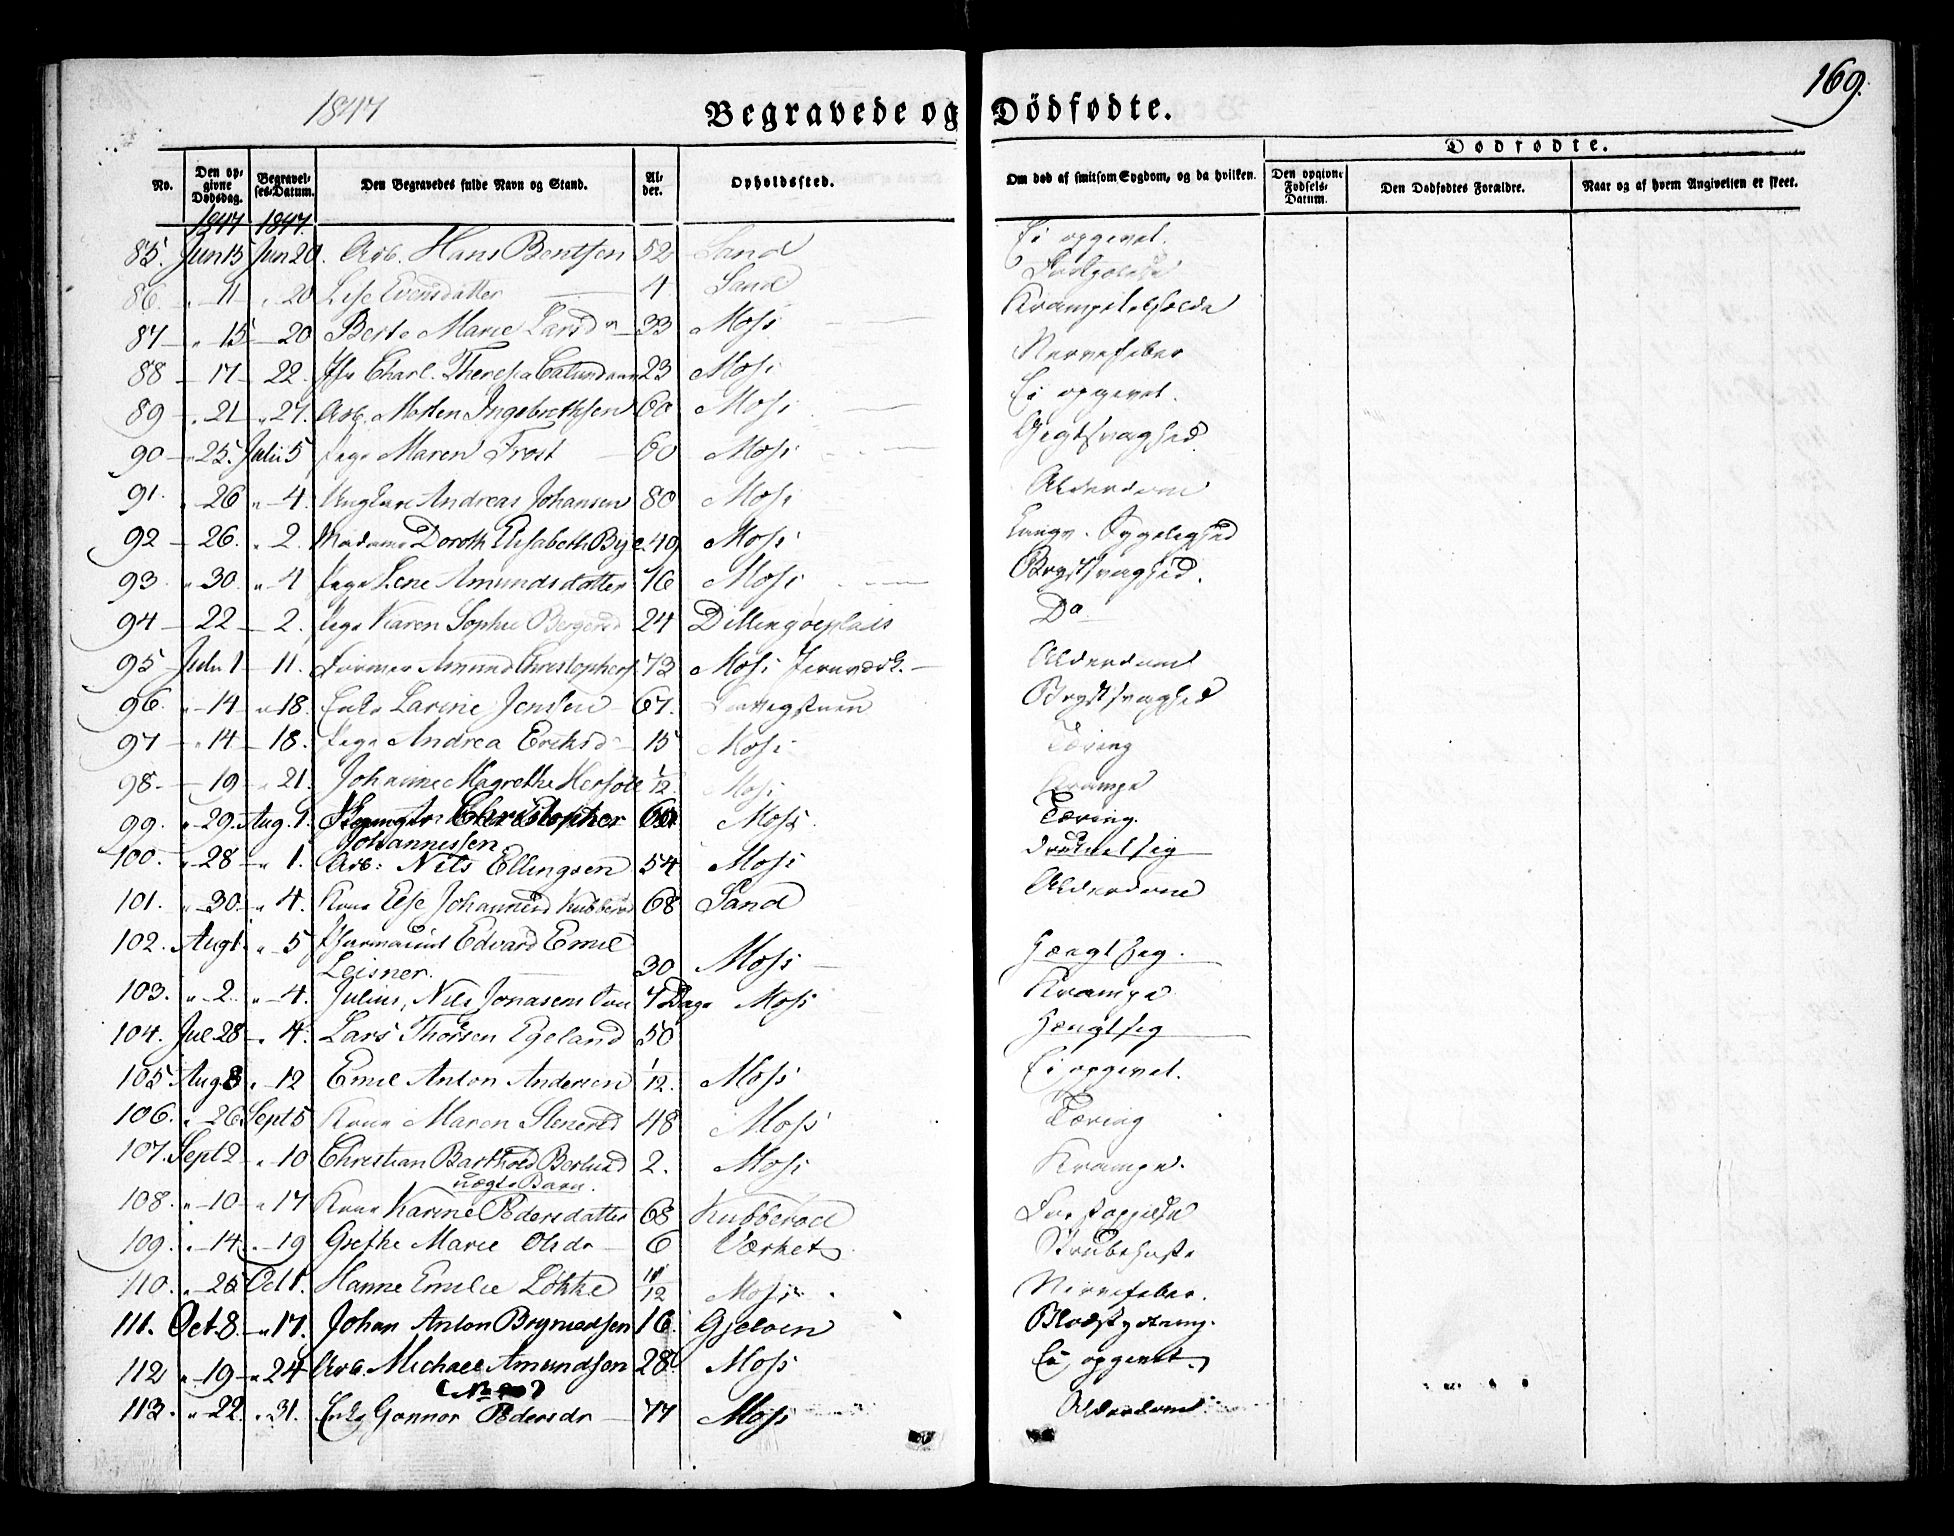 169.
1847
Begravede og Dödfødte.
Dödfødte.
No.
Den opgivne Dödsdag.
Begravelses-Datum.
Den Begravedes fulde Navn og Stand.
Alder.
Opholdssted.
Om död af smitsom Sygdom, og da hvilken.
Den opgivne Fødsels-Datum.
Den Dødfødtes Forældre.
Naar og af hvem Angivelsen er skeet.
1847 1847.
85. Jun 15 Jun 20. Arb. Hans Bentsen 52 Sand Ei opgivet.
86. " 11 " 20 Lise Evensdatter 4 Sand
87 " 15 20 Berte Marie Larsd 33 Moss
88 17 22. Charl. Theresia 23 Moss Nervefeber
89 " 21 " 27. Arb. Morten Ingebrethsen 60 Moss Ei opgivet.
90 " 25. Juli 5 Pige Maren Frost 60 Moss Gigtsvaghed
91. " 26 " 4. Andreas Johansen 80 Moss Alderdom
92 26. " 2. Madame Doroth Elisabeth Bye 49 Moss Langv. Sygelighed
93 " 30. " 4 Pige Lene Amundsdatter 76 Moss Brystsvaghed.
94 22 2. Pige Karen Sophie Bergersd 24 Dillingöeplads Do
95 Juli 1 11. Amund Christophers. 73 Moss Jernværk. Alderdom
96. " 14 " 18. Enke Larine Jensen 67. Brystsvaghed
97 " 14 18. Pige Andrea Eriksd 15 Moss Tæring
98. 19 " 21. Johanne Magrethe 1/12 Moss Krampe
99. " 29. Aug. 1. Christopher Johannessen Moss Tæring.
100. " 28 " 1. Arb: Nils Ellingsen 54 Moss druknet sig
101. " 30. " 4. Kone Else Johannesd Kubberöd 68 Sand Alderdom
102. Aug 1 " 5 Pharmaceut Edvard Emil
Leisner. 30 Moss Hængt sig.
103. " 2. " 4. Julius, Nils Jonasens Sön 7 Dage Moss Krampe
104. Jul. 28 " 4. Lars Thorsen Egeland 50 Hængt sig
105 Aug 8 " 12 Emil Anton Andersen 1/12. Moss Ei opgivet.
106. " 26 Sept 5 Kone Maren Stenersd 48 Moss Tæring
107. Sept 2 " 10 Christian Barthold Berlund 2. Moss Krampe.
uægte Barn.
108. " 10 " 17 Kone Karine Pedersdatter 68 Kubberöd Forstoppelse
109. " 14 " 19 Grethe Marie Olsdr 6 Værket Strubehoste
110. " 25 Oct 1. Hanne Emilie Lökke 11/12 Moss Nervefeber.
111. Oct. 8. " 17. Johan Anton Brynildsen 16. Gjelöen Blodstyrtning.
112 " 19 " 24 Arb. Michael Amundsen 28 Moss Ei opgivet
113. " 22. " 31. Enke Gunnor Pedersdr 77 Moss Alderdom